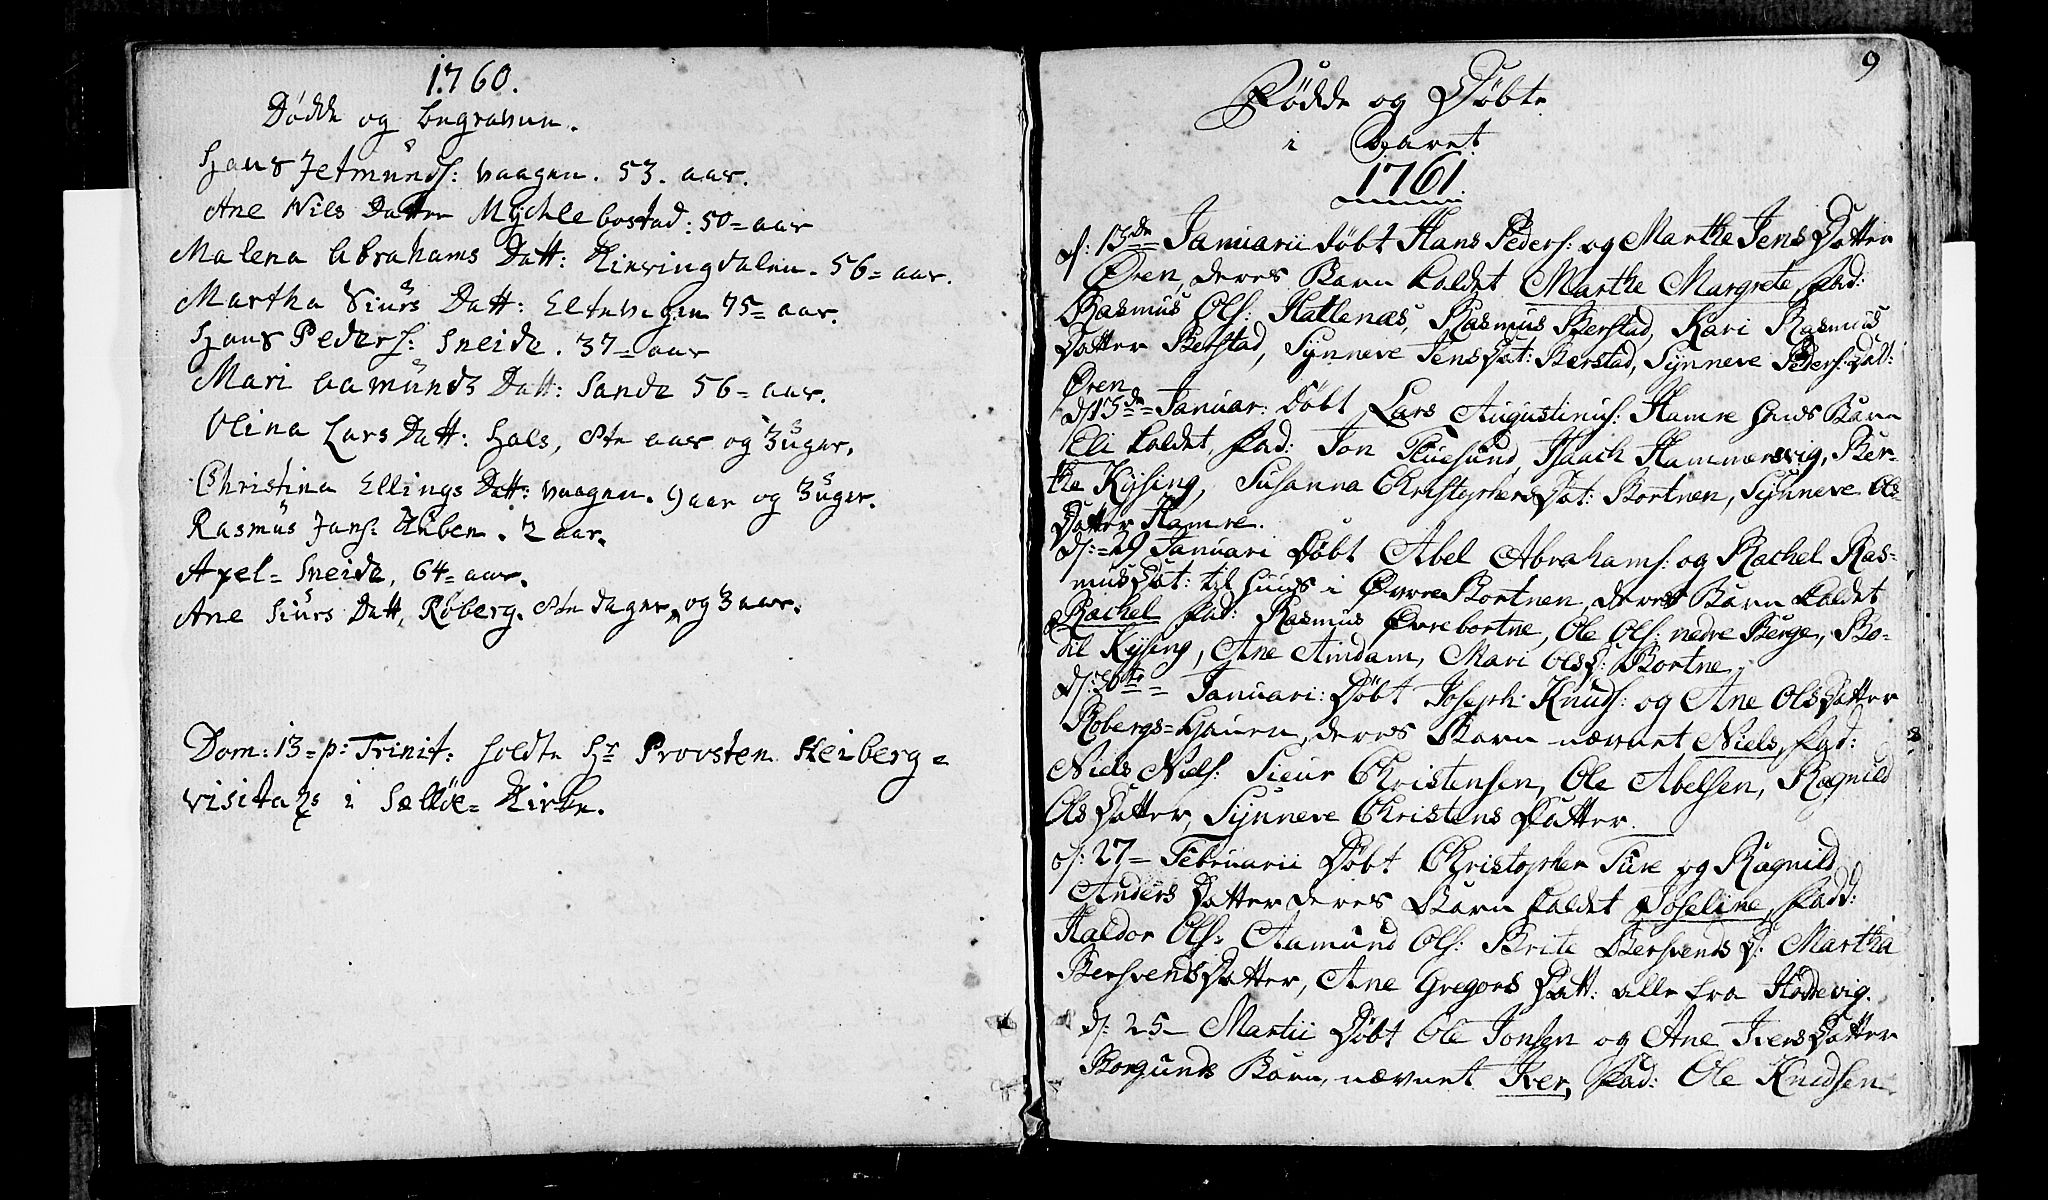 1760.
Dödde og begravne.
Hans Jetmunds: vaagen. 53. aar.
Ane Nils Datter Mychlebostad: 50= aar
Malena Abrahams Datt: Kierringdalen. 56= aar.
Martha Siurs Datt: Eltevagen 75= aar.
Hans Peders: Sneide. 37= aar
Mari Aamunds Datt: Sande 56= aar.
Olina Lars Datt: Hals, 8te aar og 3 uger.
Christina Ellings Datt: vaagen. 9 aar og 3 uger.
Rasmus Jans: Huben. 2 aar.
Axel= Sneide, 64= aar.
Ane Siurs Datt, Roberg. 8te dager, og 3 aar.
Dom: 13= p: Trinit: holdte Hr Provsten Heiberg=
visitats i Sælløe= Kirke.
9
Födde og Döbte
i Aaret
1761.
d: 13de Januarii döbt Hans Peders: og Marthe Jens Datter
Øren, deres Barn kaldet Marthe Margrete, Fad:
Rasmus Ols: Hatlenæs, Rasmus Berstad, Kari Rasmus
Datter Berstad, Synneve Jens Dat: Berstad, Synneve Peders: Dat:
Øren
d 13de= Januar: döbt Lars Augustinus: Hamre hans Barn
Eli kaldet, Fad: Jon Tuesund, Isaach Hammersvig, Ber-
the Kysing, Susanna Christophers Dat: Bortnen, Synneve Ols
Datter Hamre.
d:= 29 Januari Döbt Abel Abrahams: og Rachel Ras-
mus Dat: til huus i Øvre Bortnen, deres Barn kaldet
Rachel Fad: Rasmus Øvrebortne, Ole Ols: nedre Berge, Bo-
til Kysing, Ane Aindam, Mari Ols D: Bortne.
d: 30te= Januari: Döbt Joseph Knuds: og Ane Ols Datter
Robergs= Hauen, deres Barn nævnet Niels, Fad:
Niels Niels: Sieur Christensen, Ole Abelsen, Ragnild
Ols Datter, Synneve Christens Datter.
d: 27= Februarii Döbt Christopher Ture og Ragnild
Anders Datter deres Barn kaldet Joseline, Fadd:
Haldor Ols: Aamund Ols: Brite Bersvends D: Martha
Bersvends Datter, Ane Gregors Datt: alle fra Hoddevig.
d: 25= Martii Döbt Ole Jonsen og Ane Ivers Datter
Borgunds Barn, nævnet Iver, Fad: Ole Knudsen